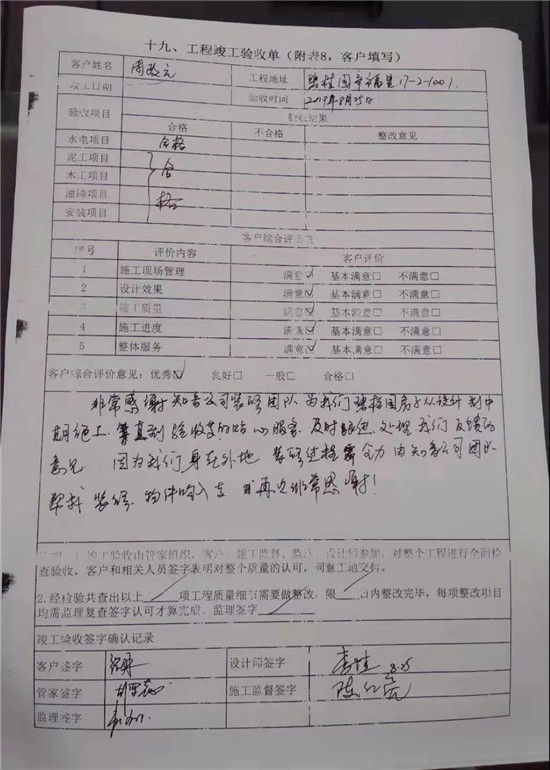 十九、工程竣工验收单（附表8，客户填写）
客户姓名 周政元 工程地址 碧桂园幸福里17-2-1001
竣工日期 验收时间 2019年8月25日
验收项目 验收结果
合格 不合格 整改意见
水电项目 合格
泥工项目
木工项目 合
油漆项目 格
安装项目
客户综合评价表
序号 评价内容 客户评价
1 施工现场管理 满意☑ 基本满意□ 不满意□
2 设计效果 满意☑ 基本满意□ 不满意□
3 施工质量 满意☑ 基本满意□ 不满意□
4 施工进度 满意☑ 基本满意□ 不满意□
5 整体服务 满意☑ 基本满意□ 不满意□
客户综合评价意见：优秀☑ 良好□ 一般□ 合格□
非常感谢知音公司装修团队 为我们碧桂园房子从设计到中
期施工 直到验收等的贴心服务 及时跟进 处理我们反馈的
意见 因为我们身在外地 装修过程全力由知音公司团队
帮我装修 物件购入等 再次非常感谢！
说明：1.竣工验收由管家组织，客户、施工监督、监理、设计师参加，对整个工程进行全面检
查验收，客户和相关人员签字表明对整个质量的认可，同意工地交付。
2.经检验共查出以上 项工程质量细节需要做整改，限 日内整改完毕，每项整改项目
均需监理复查签字认可才算完成。监理签字
竣工验收签字确认记录
客户签字 设计师签字 8.25
管家签字 施工监督签字
监理签字